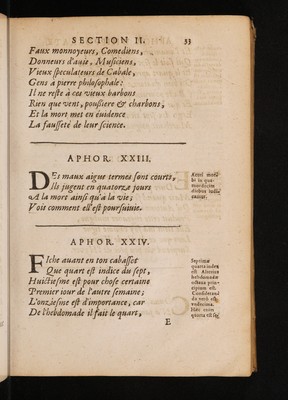 SECTION II. 33
Faux monnoyeurs, Comediens,
Donneurs d'auis, Musiciens,
Vieux speculateurs de Cabale,
Gens à pierre philosophale:
Il ne reste à ces vieux barbons
Rien que vent, poussiere & charbons,
Et la mort met en éuidence
La fausseté de leur science.
APHOR. XXIII.
DEs maux aigus termes sont courts,
Ils jugent en quatorze jours
A la mort ainsi qu'à la vie;
Vois comment ell'est poursuiuie.
Acuti morbi
in quatuordecim
diebus iudicantur.
APHOR. XXIV.
FIche auant en ton cabasset
Que quart est indice du sept,
Huictiesme est pour chose certaine
Premier iour de l'autre semaine;
L'onziesme est d'importance, car
De l'hebdomade il fait le quart,
Septimæ
quarta index
est. Alterius
hebdomadæ
octaua principium
est.
Consideranda
verò est
vndecima.
Hæc enim
quarta est se-
E